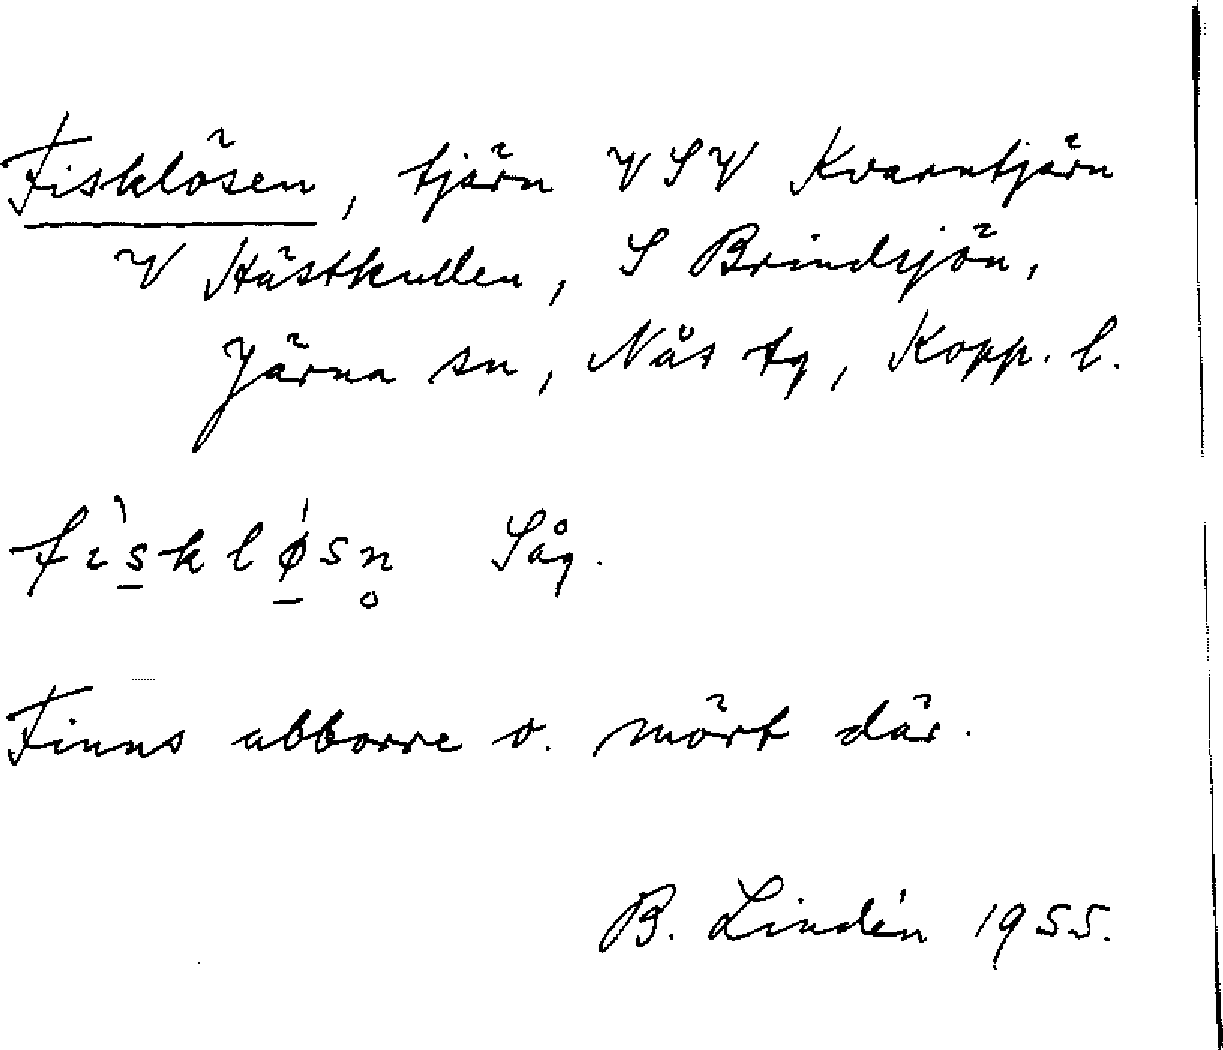 Fisklösen, tjärn VSV Kvarntjärn
V Hästkullen, S Brindsjön,
Järna sn, Nås tg, Kopp. l.
fìsklǿsn̥ Såg.
Finns abborre o. mört där.
B. Lindén 1955.